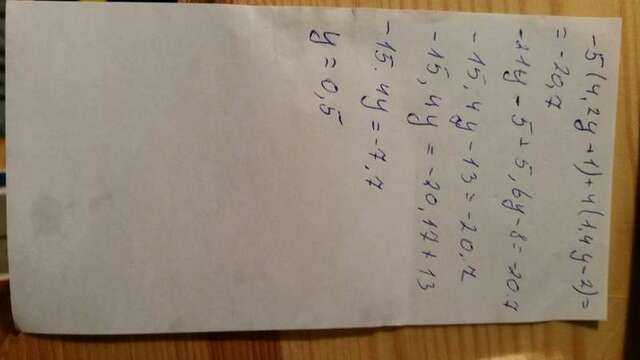 -5(4,2y+1)+4(1,4y-2)=
=-20,7
-21y-5+5,6y-8=-20.7
-15,4y-13=-20,7
-15,4y=-20,17+13
-15,4y=-7,7
y=0,5